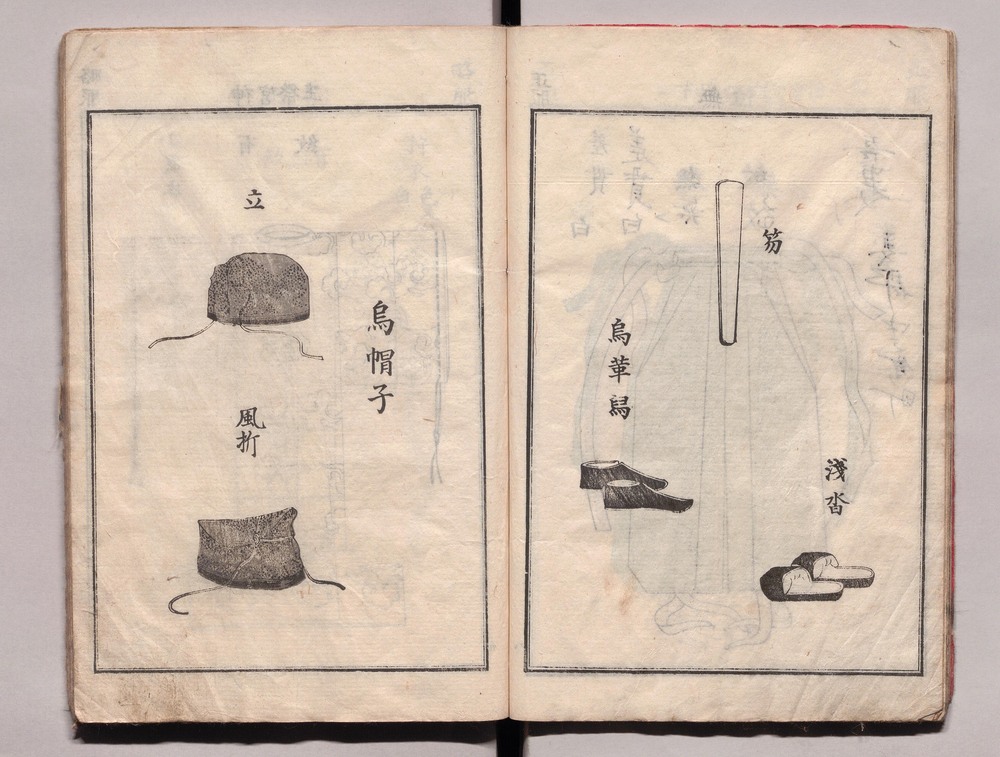 淺沓
笏
烏革舄
烏帽子
立
風折